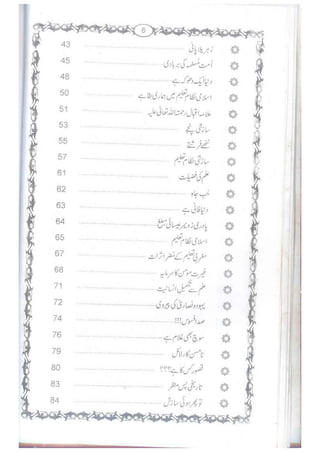 6
زہریلا پانی 43
امت مسلمہ کی بربادی 45
دنیا ایک دھوکہ ہے 48
اسلامی نظام تعلیم میں ہماری بقا ہے 50
علامہ اقبال رحمۃ اللہ تعالیٰ علیہ 51
سازشی پنجے 53
ننھے فرشتے 55
سازشی نظام تعلیم 57
علم کی فضیلت 61
حب جاہ 62
دنیا فانی ہے 63
پادری زویمر عیسائی مبلغ 64
اسلامی نظام تعلیم 65
مغربی تعلیم کے مضر اثرات 67
غیرت مومن کا سرمایہ 68
علم سے تکمیل انسانیت 71
یہود و نصاریٰ کی پیروی 72
صد افسوس!!! 74
سوچ بھی غلام ہے 76
ٹامسن کا رائل 79
قصور کس کا ہے؟؟؟ 80
تاریخی پس منظر 83
تو پھر ہوئی سازش 84